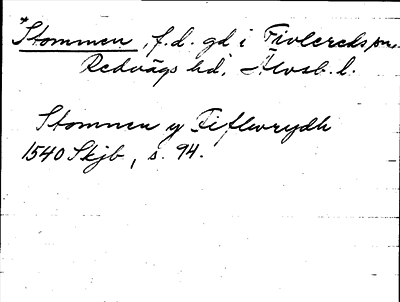 *Stommen, f.d. gd i Fivlereds sn.
Redvägs hd, Älvsb. l.
Stomnen y Fiflerydh
1540 Skjb, s. 94.